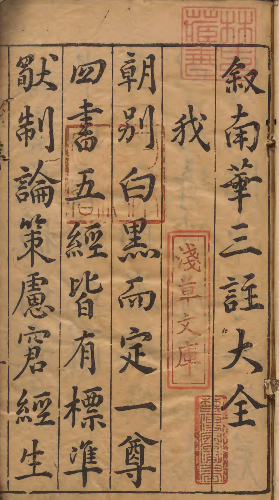 叙南華三註大全
我
朝別白黒而定一尊
四書五經皆有標準
猷制論策慮窘經生
林氏
藏書
淺草文庫